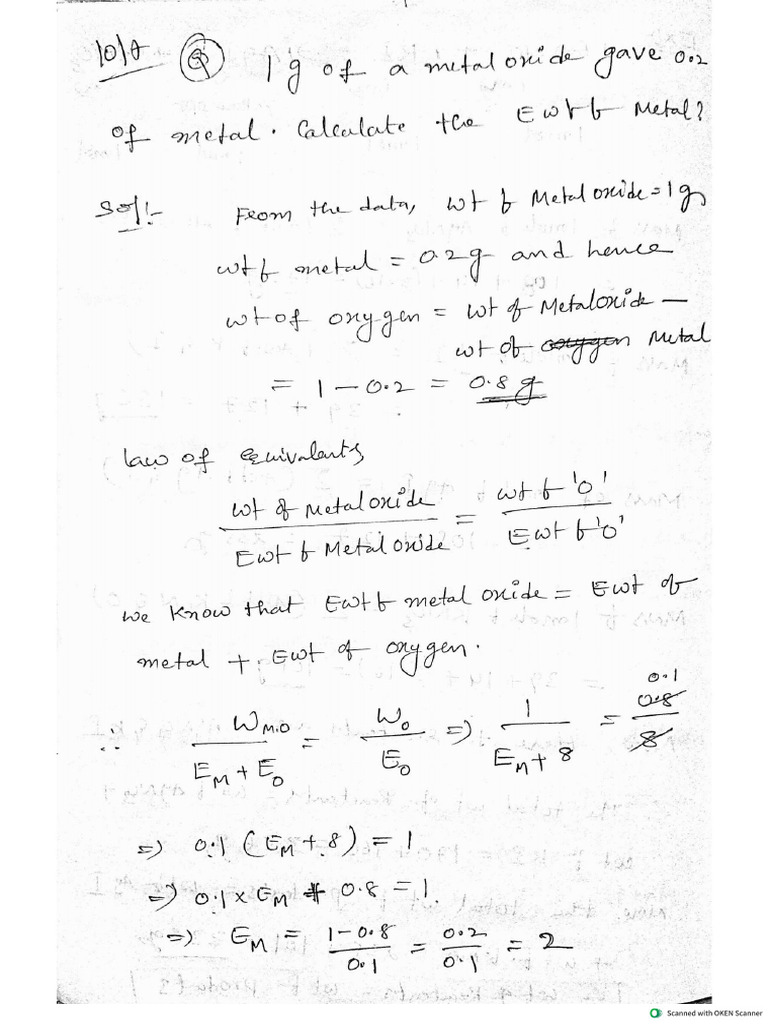 10/A Q 1 g of a metal oxide gave 0.2
of metal. Calculate the Ewt of Metal?
Sol:- From the data, wt of Metal oxide = 1g
wt of metal = 0.2g and hence
wt of oxygen = wt of Metaloxide -
wt of oxygen Metal
= 1 - 0.2 = 0.8 g
law of equivalents,
wt of Metaloxide / Ewt of Metal oxide = wt of 'O' / Ewt of 'O'
we know that Ewt of metal oxide = Ewt of
metal + Ewt of oxygen.
∴ W M.O / E M + E O = W O / E O => 1 / E M + 8 = 0.8 / 8 0.1
=> 0.1 (E M + 8) = 1
=> 0.1 x E M + 0.8 = 1.
=> E M = 1 - 0.8 / 0.1 = 0.2 / 0.1 = 2
Scanned with OKEN Scanner